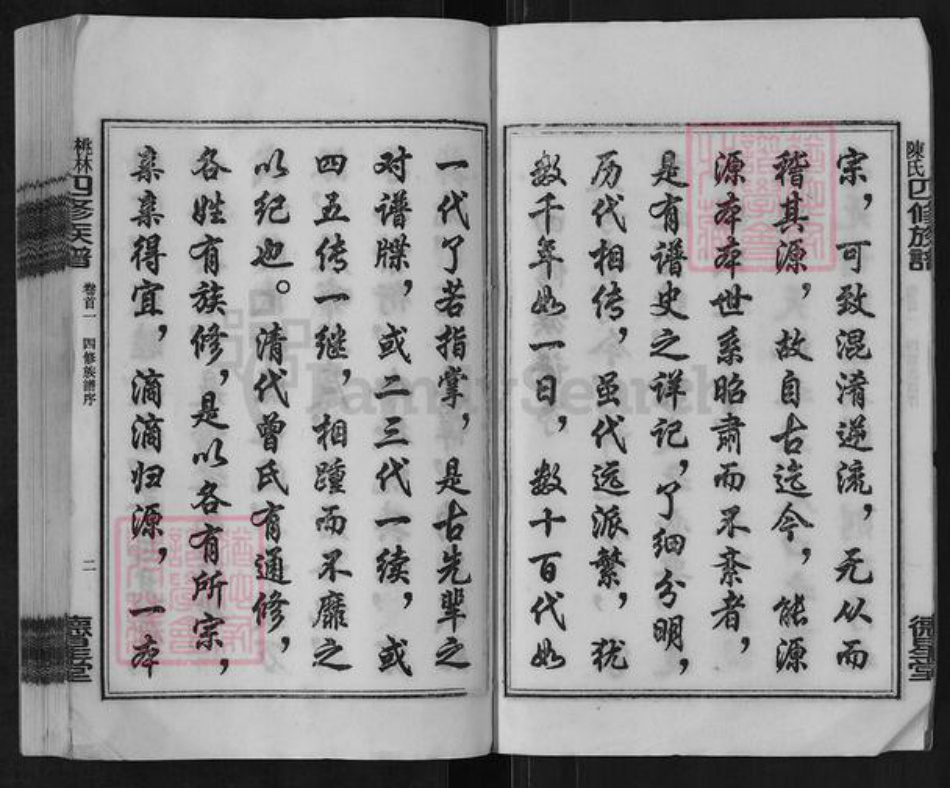 陳氏四修族譜
德星堂
宗，可致混淆逆流，无从而
稽其源，故自古迄今，能源
源本本世系昭肃而不紊者，
是有谱史之详记，了细分明，
历代相传，虽代远派繁，犹
数千年如一日，数十百代如
一代了若指掌，是古先辈之
对谱牒，或二三代一续，或
四五传一继，相踵而不靡之
以纪也。清代曾氏有通修，
各姓有族修，是以各有所宗，
亲亲得宜，滴滴归源，一本
桃林四修族譜
卷首一
四修族譜序
二
德星堂
FamilySearch